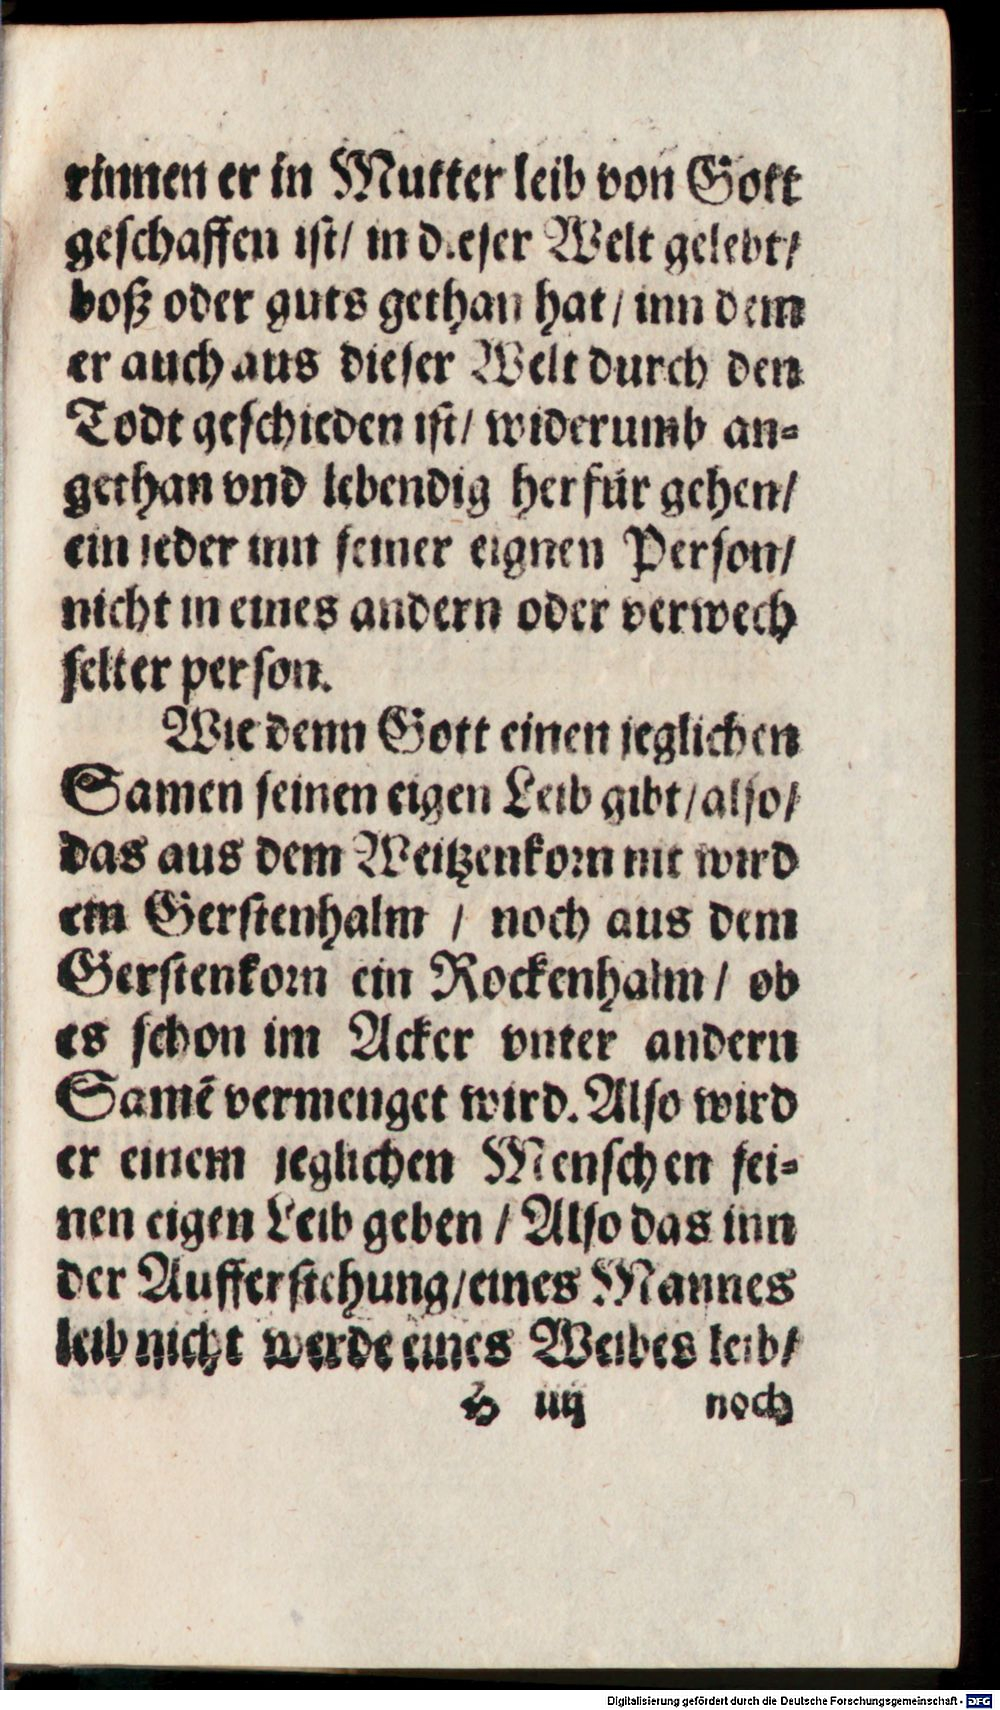 rinnen er in Mutter leib von Gott
geschaffen ist/ in dieser Welt gelebt/
boß oder guts gethan hat/ inn dem
er auch aus dieser Welt durch den
Todt geschieden ist/ widerumb an=
gethan vnd lebendig herfür gehen/
ein jeder inn seiner eignen Person/
nicht in eines andern oder verwech
selter person.
Wie denn Gott einen jeglichen
Samen seinen eigen Leib gibt/also/
das aus dem Weitzenkorn nit wird
ein Gerstenhalm / noch aus dem
Gerstenkorn ein Rockenhalm/ ob
es schon im Acker vnter andern
Samē vermenget wird. Also wird
er einem jeglichen Menschen sei=
nen eigen Leib geben / Also das inn
der Aufferstehung/eines Mannes
leib nicht werde eines Weibes leib/
H iiij noch
Digitalisierung gefördert durch die Deutsche Forschungsgemeinschaft - DFG